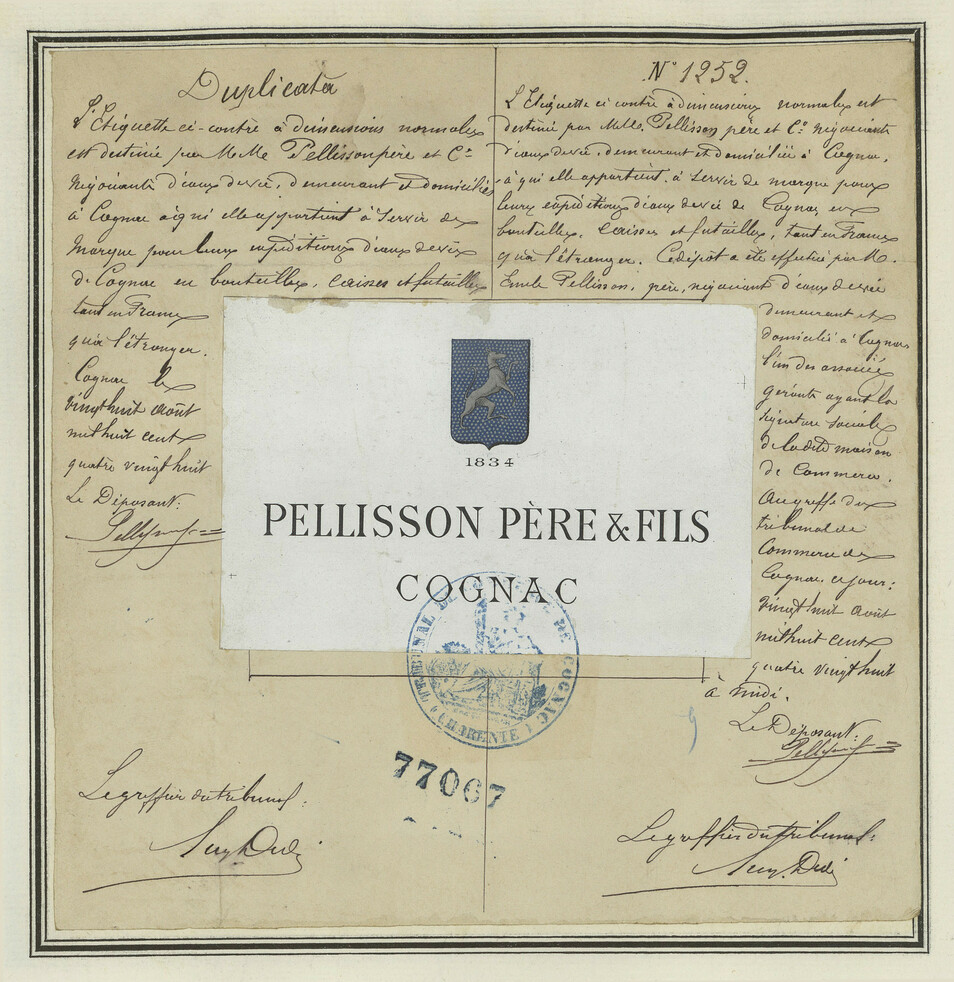 Duplicata
L'Etiquette ci-contre à dimensions normales
est destinée par M.Me. Pellisson père et Cie
Négociants d'eaux de vie, demeurant et domiciliés
à Cognac à qui elle appartient à servir de
Marque pour leurs expéditions d'eaux de vie
de Cognac en bouteilles, caisses et futailles
tant en France
qu'à l'étranger.
Cognac le
vingt huit Août
mil huit cent
quatre vingt huit
Le Déposant:
Le greffier du tribunal:
N° 1252.
L'Etiquette ci contre à dimensions normales est
destiné par Pellisson père et Co négociants
d'eaux de vie, demeurant et domiciliés à Cognac,
à qui elle appartient, à servir de marque pour
leurs expéditions d'eaux de vie de Cognac en
bouteilles, caisses et futailles, tant en France
qu'à l'étranger. Ce dépôt a été effectué par M.
Emile Pellisson, père, négociant d'eaux de vie
demeurant et
domicilié à Cognac
l'un des associés
gérants ayant la
signature sociale
de la dite maison
de Commerce.
Au greffe du
tribunal de
Commerce de
Cognac, ce jour:
vingt huit Août
mil huit cent
quatre vingt huit
à midi.
Le Déposant:
Le greffier du tribunal:
1834
PELLISSON PÈRE & FILS
COGNAC
TRIBUNAL DE COMMERCE DE COGNAC
(CHARENTE)
77067